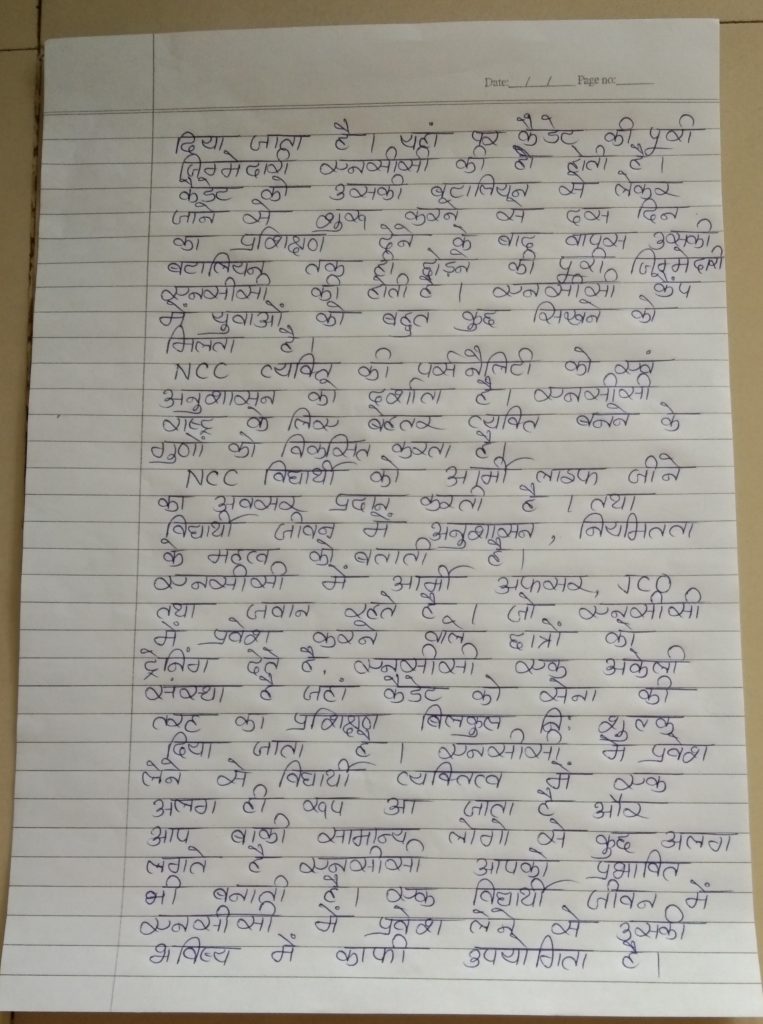 Date:__/__/__ Page no:______
दिया जाता है । यहां पर कैडेट की पूरी
जिम्मेदारी एनसीसी की ही होती है ।
कैडेट को उसकी बटालियन से लेकर
जाने से शुरू करने से दस दिन
का प्रशिक्षण देने के बाद वापस उसकी
बटालियन तक ही छोड़ने की पूरी जिम्मेदारी
एनसीसी की होती है । एनसीसी कैंप
में युवाओं को बहुत कुछ सिखने को
मिलता है ।
NCC व्यक्ति की पर्सनैलिटी को एवं
अनुशासन को दर्शाता है । एनसीसी
राष्ट्र के लिए बेहतर व्यक्ति बनने के
गुणों को विकसित करता है ।
NCC विद्यार्थी को आर्मी लाइफ जीने
का अवसर प्रदान करती है । तथा
विद्यार्थी जीवन में अनुशासन , नियमितता
के महत्व को बताती है ।
एनसीसी में आर्मी अफसर, JCO
तथा जवान रहते है । जो एनसीसी
में प्रवेश करने वाले छात्रों को
ट्रेनिंग देते है. एनसीसी एक अकेली
संस्था है जहां कैडेट को सेना की
तरह का प्रशिक्षण बिलकुल नि: शुल्क
दिया जाता है । एनसीसी में प्रवेश
लेने से विद्यार्थी व्यक्तित्व में एक
अलग ही रूप आ जाता है और
आप बाकी सामान्य लोगो से कुछ अलग
लगते है एनसीसी आपको प्रभावित
भी बनाती है । एक विद्यार्थी जीवन में
एनसीसी में प्रवेश लेने से उसकी
भविष्य में काफी उपयोगिता है ।